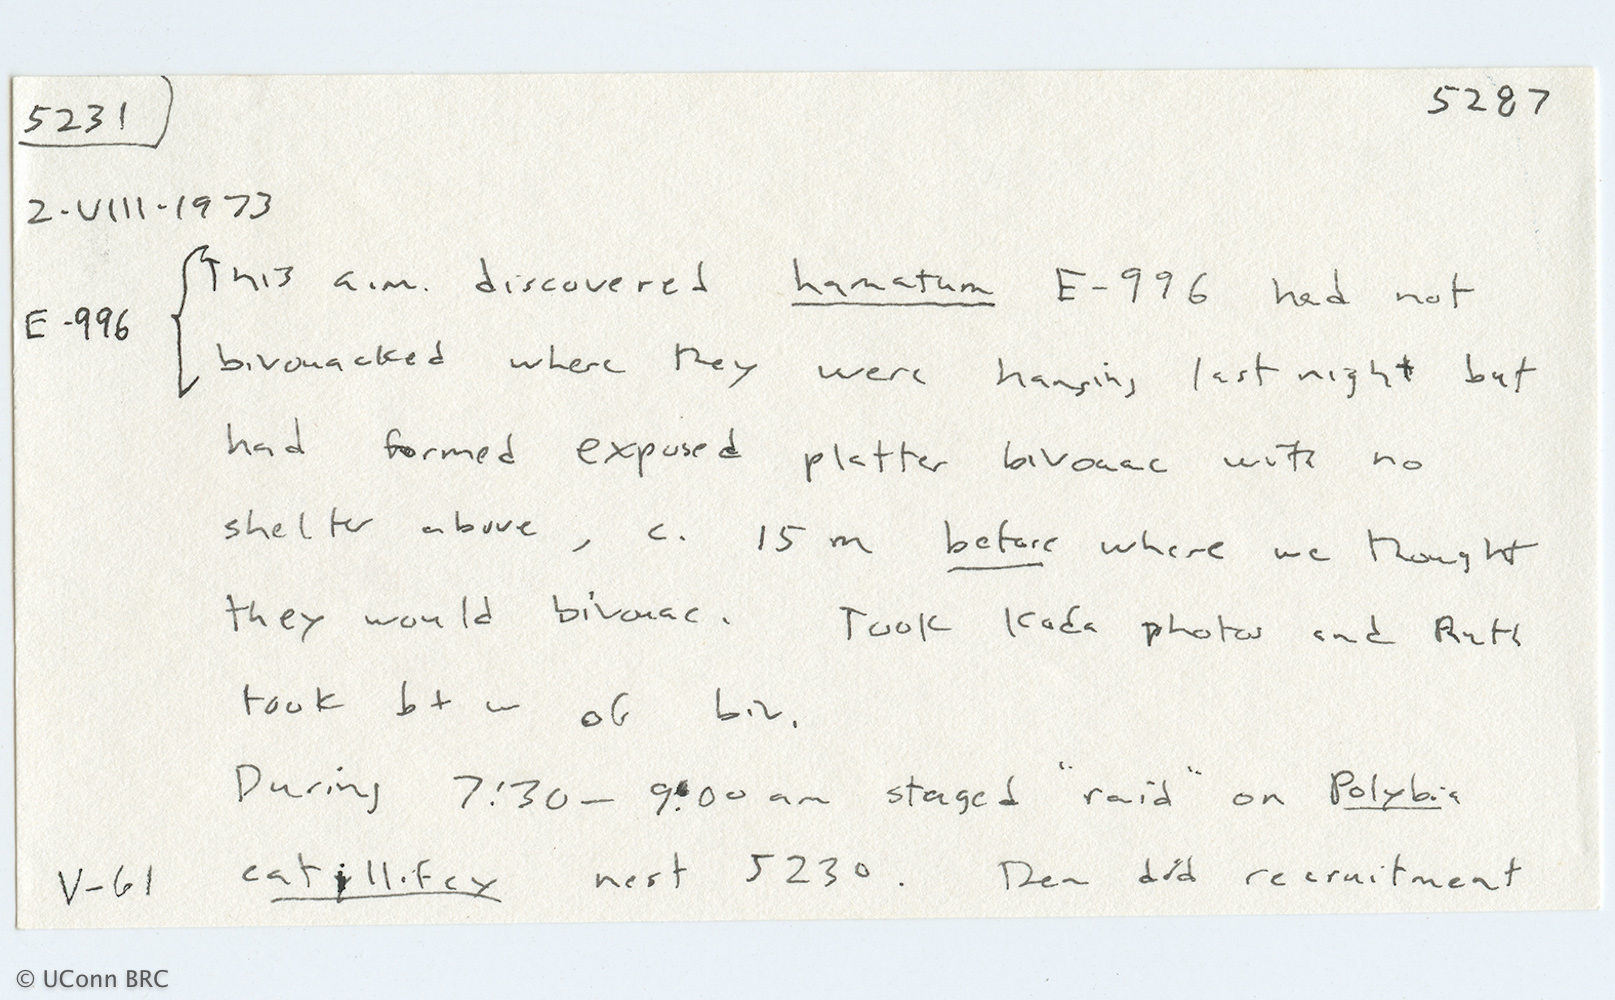 5231
5287
2-VIII-1973
E-996
This a.m. discovered hamatum E-996 had not
bivouacked where they were hanging last night but
had formed exposed platter bivouac with no
shelter above, c. 15 m before where we thought
they would bivouac. Took Koda photos and Ruth
took b + w of biv.
During 7:30 - 9:00 am staged "raid" on Polybia
V-61 catillifex nest 5230. Then did recruitment
© UConn BRC